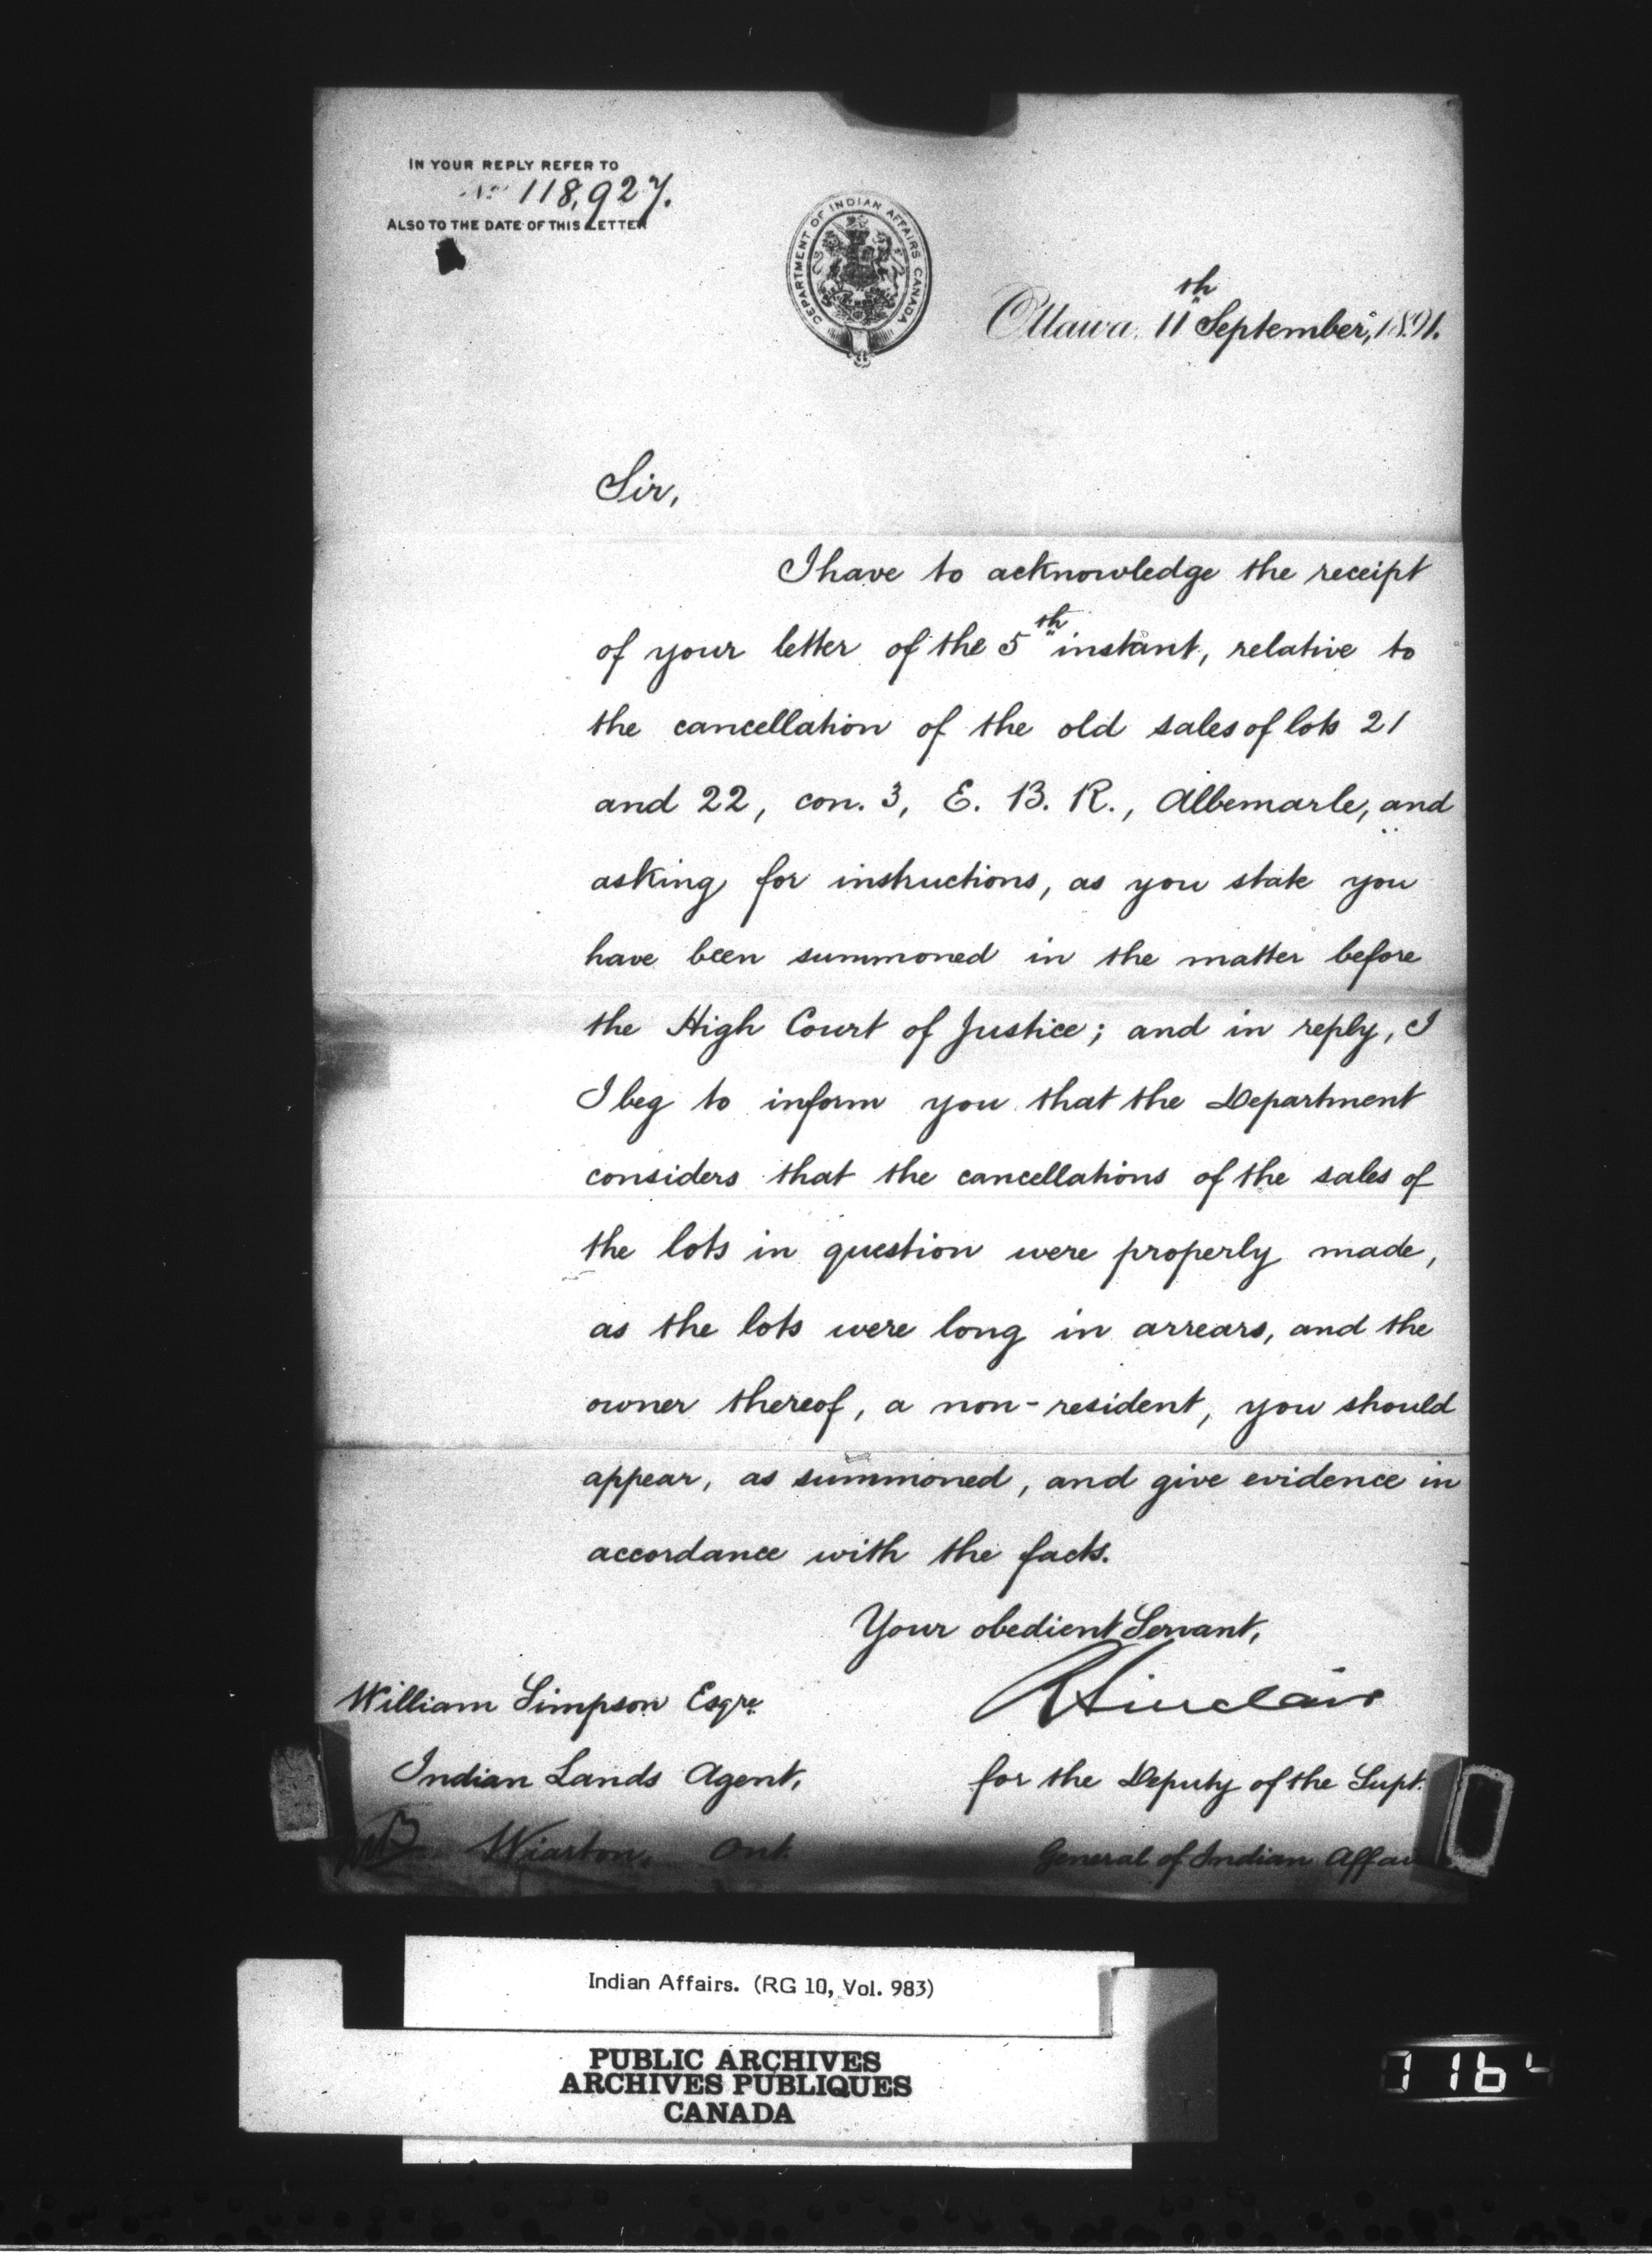 IN YOUR REPLY REFER TO
No 118,927.
ALSO TO THE DATE OF THIS LETTER
DEPARTMENT OF INDIAN AFFAIRS CANADA
Ottawa, 11th September, 1891.
Sir,
I have to acknowledge the receipt
of your letter of the 5th instant, relative to
the cancellation of the old sales of lots 21
and 22, con. 3, E. B. R., Albemarle, and
asking for instructions, as you state you
have been summoned in the matter before
the High Court of Justice; and in reply, I
I beg to inform you that the Department
considers that the cancellations of the sales of
the lots in question were properly made,
as the lots were long in arrears, and the
owner thereof, a non-resident, you should
appear, as summoned, and give evidence in
accordance with the facts.
Your obedient Servant,
R Sinclair
for the Deputy of the Supt.
General of Indian Affairs
William Simpson Esqre.
Indian Lands Agent,
Wiarton, Ont.
Indian Affairs. (RG 10, Vol. 983)
PUBLIC ARCHIVES
ARCHIVES PUBLIQUES
CANADA